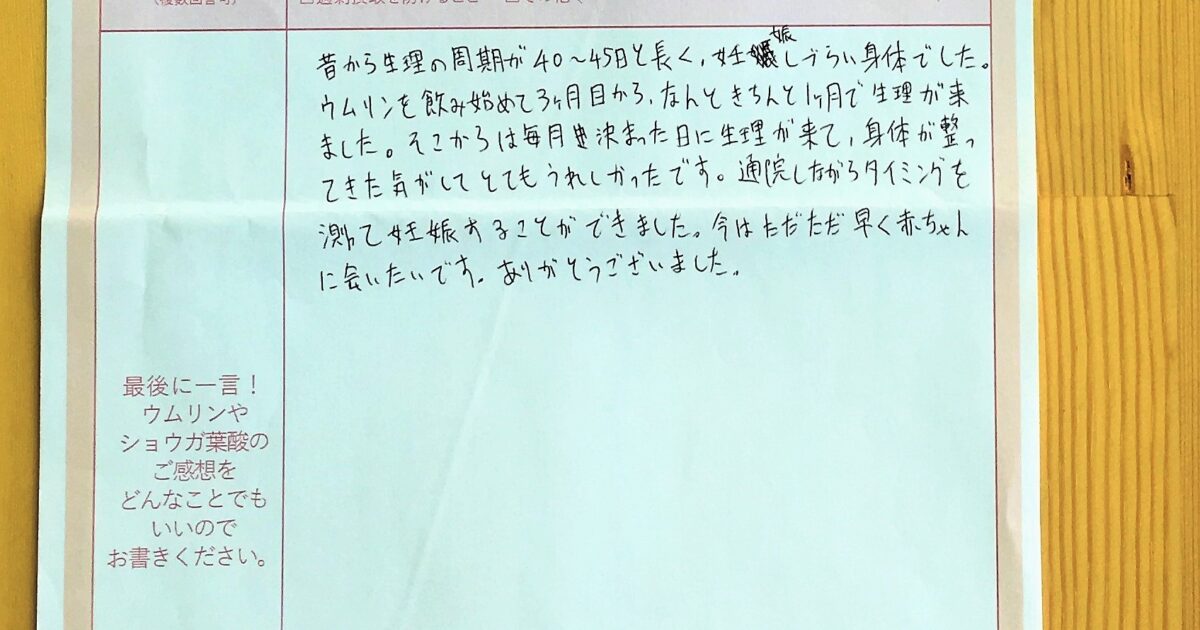 (複数回答可)
昔から生理の周期が40〜45日と長く、妊娠しづらい身体でした。
ウムリンを飲み始めて3ヶ月目から、なんときちんと1ヶ月で生理が来
ました。そこからは毎月決まった日に生理が来て、身体が整っ
てきた気がしてとてもうれしかったです。通院しながらタイミングを
測って妊娠することができました。今はただただ早く赤ちゃん
に会いたいです。ありがとうございました。
最後に一言！
ウムリンや
ショウガ葉酸の
ご感想を
どんなことでも
いいので
お書きください。